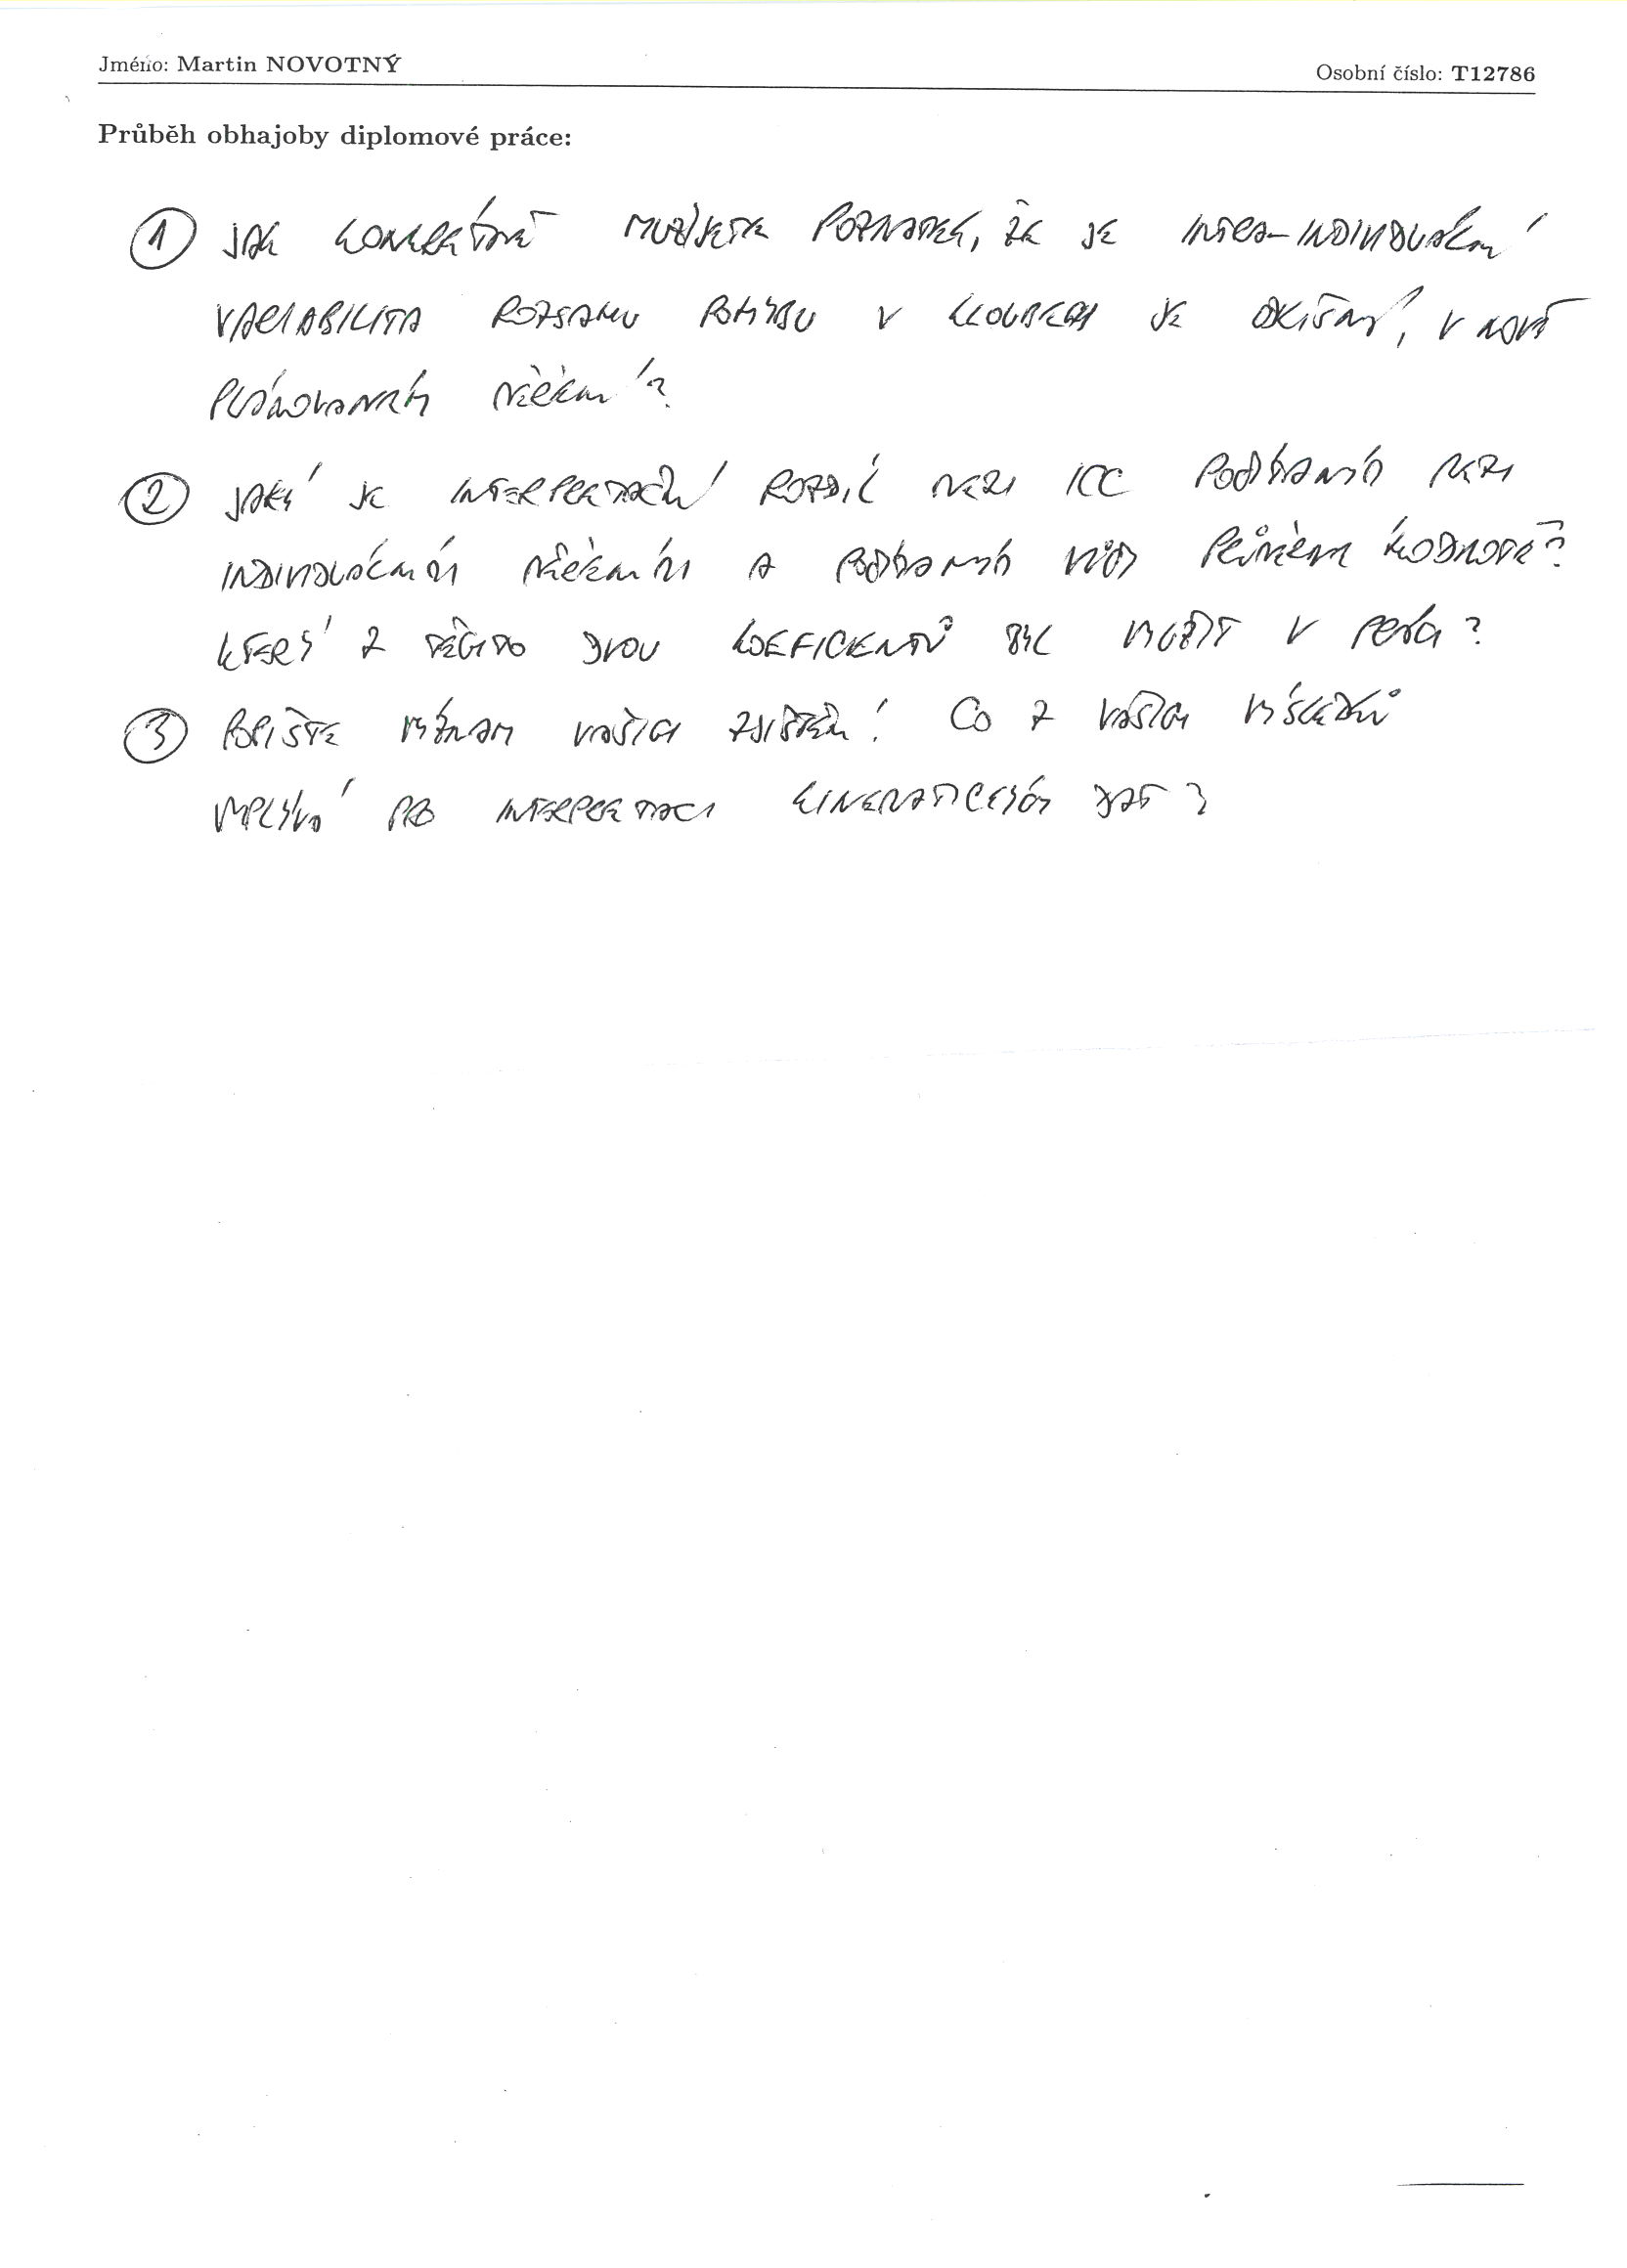 Jméno: Martin NOVOTNÝ
Osobní číslo: T12786
Průběh obhajoby diplomové práce:
1 JAK KONKRÉTNĚ VYUŽIJETE POZNATEK, ŽE JE INTRA-INDIVIDUÁLNÍ
VARIABILITA ROZSAHU POHYBU V KLOUBECH JE ODLIŠNÁ, V NOVĚ
PLÁNOVANÝCH MĚŘENÍ?
2 JAKÝ JE INTERPRETAČNÍ ROZDÍL MEZI ICC MEZI
INDIVIDUÁLNÍMI MĚŘENÍMI A VŮČI PRŮMĚRNÉ HODNOTĚ?
KTERÝ Z TĚCHTO DVOU KOEFICIENTŮ BYL VYUŽIT V PRÁCI?
3 POPIŠTE VÝZNAM VAŠICH ZJIŠTĚNÍ! CO Z VAŠICH VÝSLEDKŮ
VYPLÝVÁ PRO INTERPRETACI KINEMATICKÝCH DAT?